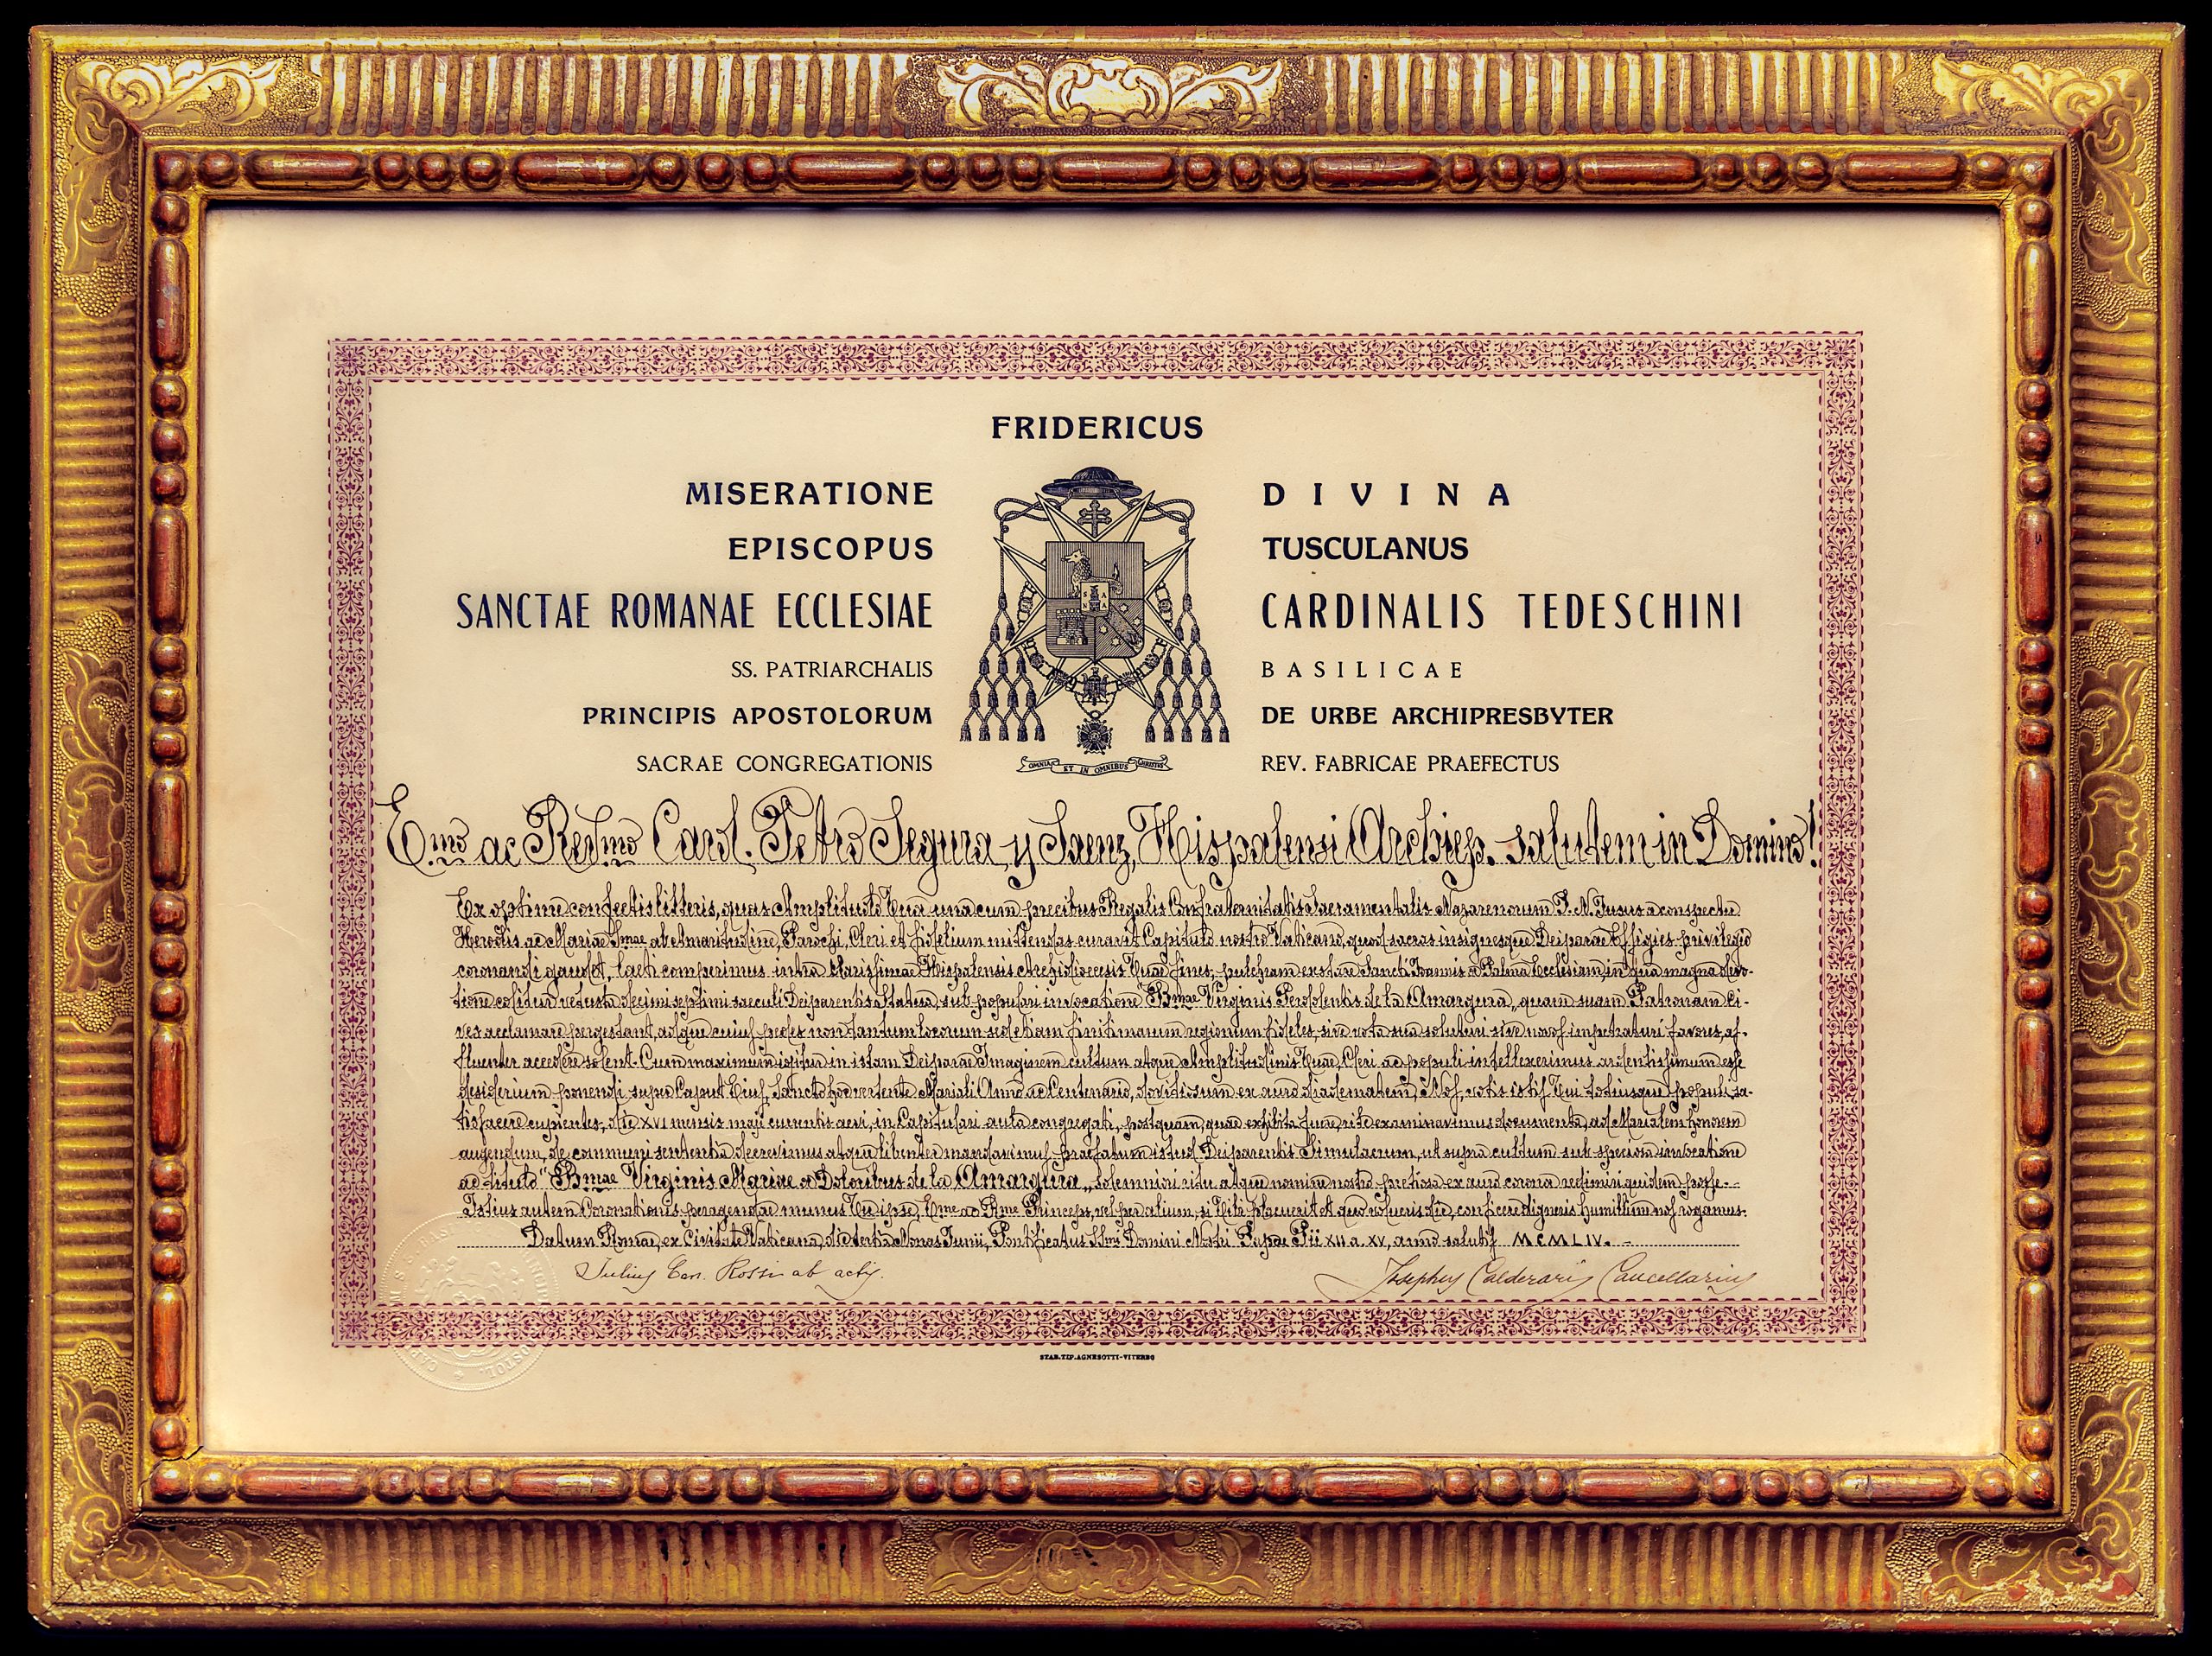 FRIDERICUS
MISERATIONE DIVINA
EPISCOPUS TUSCULANUS
SANCTAE ROMANAE ECCLESIAE CARDINALIS TEDESCHINI
SS. PATRIARCHALIS BASILICAE
PRINCIPIS APOSTOLORUM DE URBE ARCHIPRESBYTER
SACRAE CONGREGATIONIS REV. FABRICAE PRAEFECTUS
OMNIA ET IN OMNIBUS CHRISTUS
Emo ac Revmo Card. Petro Segura y Saenz, Hispalensi Archiep. salutem in Domino!
Ex optime confectis litteris, quas Amplitudo Tua una cum precibus Regalis Confraternitatis Sacramentalis Nazarenorum J. N. Jesus a conspectu
Herodis ac Mariae Smae ab Amaritudine, Parochi, Cleri et fidelium mittendas curavit Capitulo nostro Vaticano, quod sacras insignesque Deiparae Effigies privilegio
coronandi gaudet, laeti comperimus intra clarissimae Hispalensis Archidioecesis Tuae fines, pulchram exstare Sancti Joannis a Palma Ecclesiam, in qua magna devo-
tione colitur vetusta decimi septimi saeculi Deiparentis Statua, sub populari invocatione "Bmae Virginis Perdolentis de la Amargura", quam suam Patronam ci-
ves acclamare pergestiunt, adque cuius pedes non tantum locorum sed etiam finitimarum regionum fideles, sive vota sua soluturi sive novos impetraturi favores, af-
fluenter accedere solent. Cum maximum igitur in istam Deiparae Imaginem cultum atque Amplitudinis Tuae, Cleri ac populi intellexerimus ardentissimum esse
desiderium ponendi super Caput Eius, Sancto hoc vertente Mariali Anno ac Centenario, ex auro diadematem, Nos, votis istis Tui totiusque populi sa-
tisfacere cupientes, die XVI mensis maji currentis aevi, in Capitulari aula congregati, postquam, quae exhibita fuere, rite examinavimus documenta, ad Marialem honorem
augendum, de communi sententia decrevimus atque libenter mandavimus praefatum istud Deiparentis Simulacrum, ut supra cultum sub speciosa invocatione
ac titulo "Bmae Virginis Mariae a Doloribus de la Amargura", solemniore ritu atque nomine nostro pretiosa ex auro corona redimiri quidem posse.
Istius autem Coronationis peragendae munus Tu ipse, Eme ac Rme Princeps, vel per alium, si Tibi placuerit et quo volueris die, conficere digneris humillime nos rogamus.
Datum Romae, ex Civitate Vaticana, die tertia Nonas Junii, Pontificatus SSmi Domini Nostri Papae Pii XII a. XV, anno salutis MCMLIV.
Julius Can. Rossi ab actis.
Josephus Calderari Cancellarius
STAB. TIP. AGNESOTTI-VITERBO